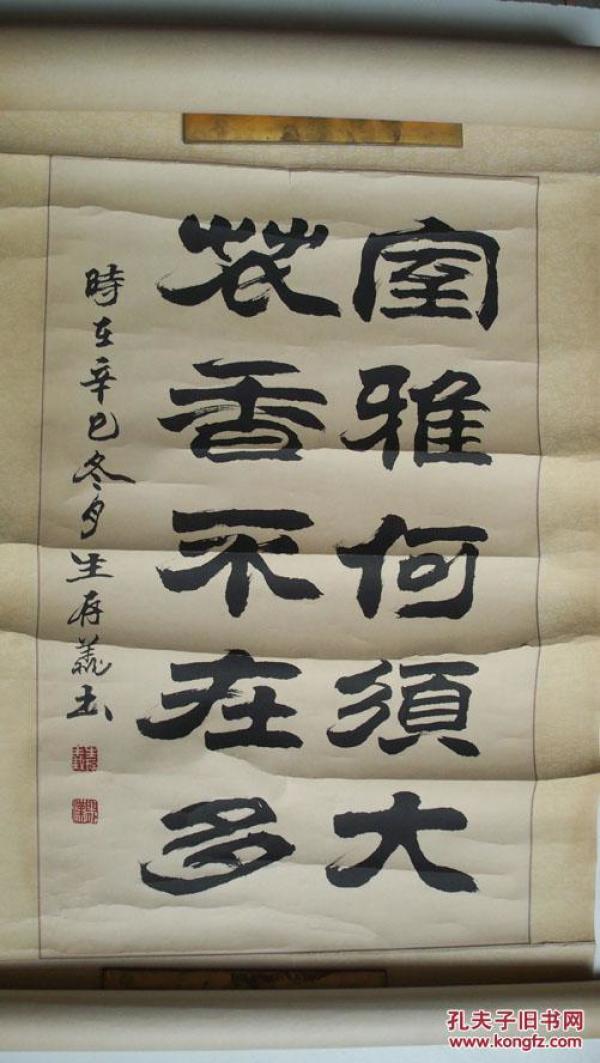 室雅何須大
花香不在多
時在辛巳冬月生存義书
孔夫子旧书网
www.kongfz.com